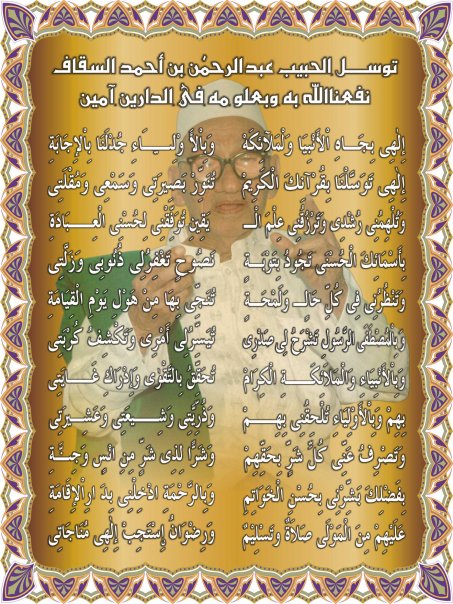 توسل الحبيب عبد الرحمٰن بن أحمد السقاف
نفعنا الله به وبعلومه في الدارين آمين
اِلٰهِى بِجَـاهِ الْأَنْبِيَا وَلْمَلَائِكَةْ وَبِالْأَوْلِيَـاءِ جُدْلَنَا بِالْإِجَابَةِ
اِلٰهِى تَوَسَّلْنَا بِقُرْآنِكَ الْكَرِيمْ تُنَوِّرْ بَصِيرَتِى وَسَمْعِى وَمُقْلَتِى
وَتُلْهِمُنِى رُشْدِى وَتَرْزُقْنِى عِلْمَ الْـ يَقِينْ تُوَفِّقْنِى لِحُسْنِى الْعِبَادَةِ
بِأَسْمَائِكَ الْحُسْنَى تَجُودُ بِتَوْبَةٍ نَصُوحٍ تَغْفِرْلِى ذُنُوبِى وَزَلَّتِى
وَتَنْظُرُنِى فِى كُلِّ حَالٍ وَلَمْحَةٍ تُنَجِّى بِهَا مِنْ هَوْلِ يَوْمِ الْقِيَامَةِ
وَبِالْمُصْطَفَى الرَّسُولْ تَشْرَحْ لِى صَدْرِى تُيَسِّرْلِى أَمْرِى وَتَكْشِفْ كُرْبَتِى
وَبِالْأَنْبِيَاءِ وَالْمَلَائِكَةِ الْكِرَامْ تُحَقِّقْ بِالتَّقْوَى وَإِدْرَاكِ غَايَتِى
بِهِمْ وَبِالْأَوْلِيَاءِ تُلْحِقُنِى بِهِمْ وَذُرِّيَّتِى وَشِيعَتِى وَعَشِيرَتِى
وَتَصْرِفُ عَنِّى كُلَّ شَرٍّ بِحَقِّهِمْ وَشَرَّا لِذِى شَرٍّ مِنِ انْسٍ وَجِنَّةِ
بِفَضْلِكَ بَشِّرْنِى بِحُسْنِ الْخَوَاتِمِ وَبِالرَّحْمَةِ الْأَحْلٰى بِدَارِ الْإِقَامَةِ
عَلَيْهِمْ مِنَ الْمَوْلَى صَلَاةٌ وَتَسْلِيمٌ وَرِضْوَانُ إِسْتَجِبْ اِلٰهِى مُنَاجَاتِى